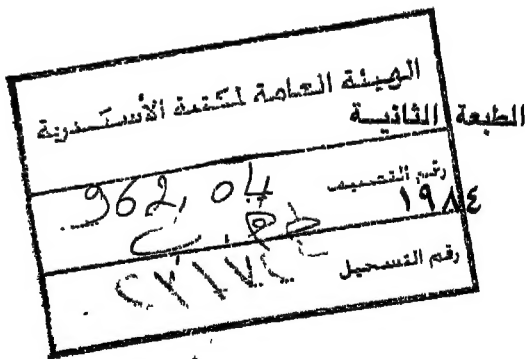 الهيئة العامة لمكتبة الأسكندرية
الطبعة الثانية
رقم التصنيف 962,04
١٩٨٤
رقم التسجيل